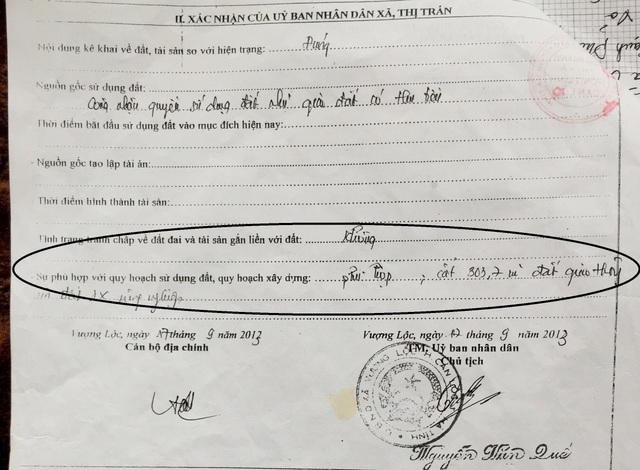 II. XÁC NHẬN CỦA UỶ BAN NHÂN DÂN XÃ, THỊ TRẤN
Nội dung kê khai về đất, tài sản so với hiện trạng: Đúng
Nguồn gốc sử dụng đất:
Công nhận quyền sử dụng đất như giao đất có thu tiền
Thời điểm bắt đầu sử dụng đất vào mục đích hiện nay:
Nguồn gốc tạo lập tài sản:
Thời điểm hình thành tài sản:
Tình trạng tranh chấp về đất đai và tài sản gắn liền với đất: Không
Sự phù hợp với quy hoạch sử dụng đất, quy hoạch xây dựng: phù hợp, cắt 303,7 m² đất giao thông
Vượng Lộc, ngày 17 tháng 9 năm 2013 Vượng Lộc, ngày 17 tháng 9 năm 2013
Cán bộ địa chính TM, Uỷ ban nhân dân
Chủ tịch
VƯỢNG LỘC
HÀ TĨNH
Nguyễn Quế